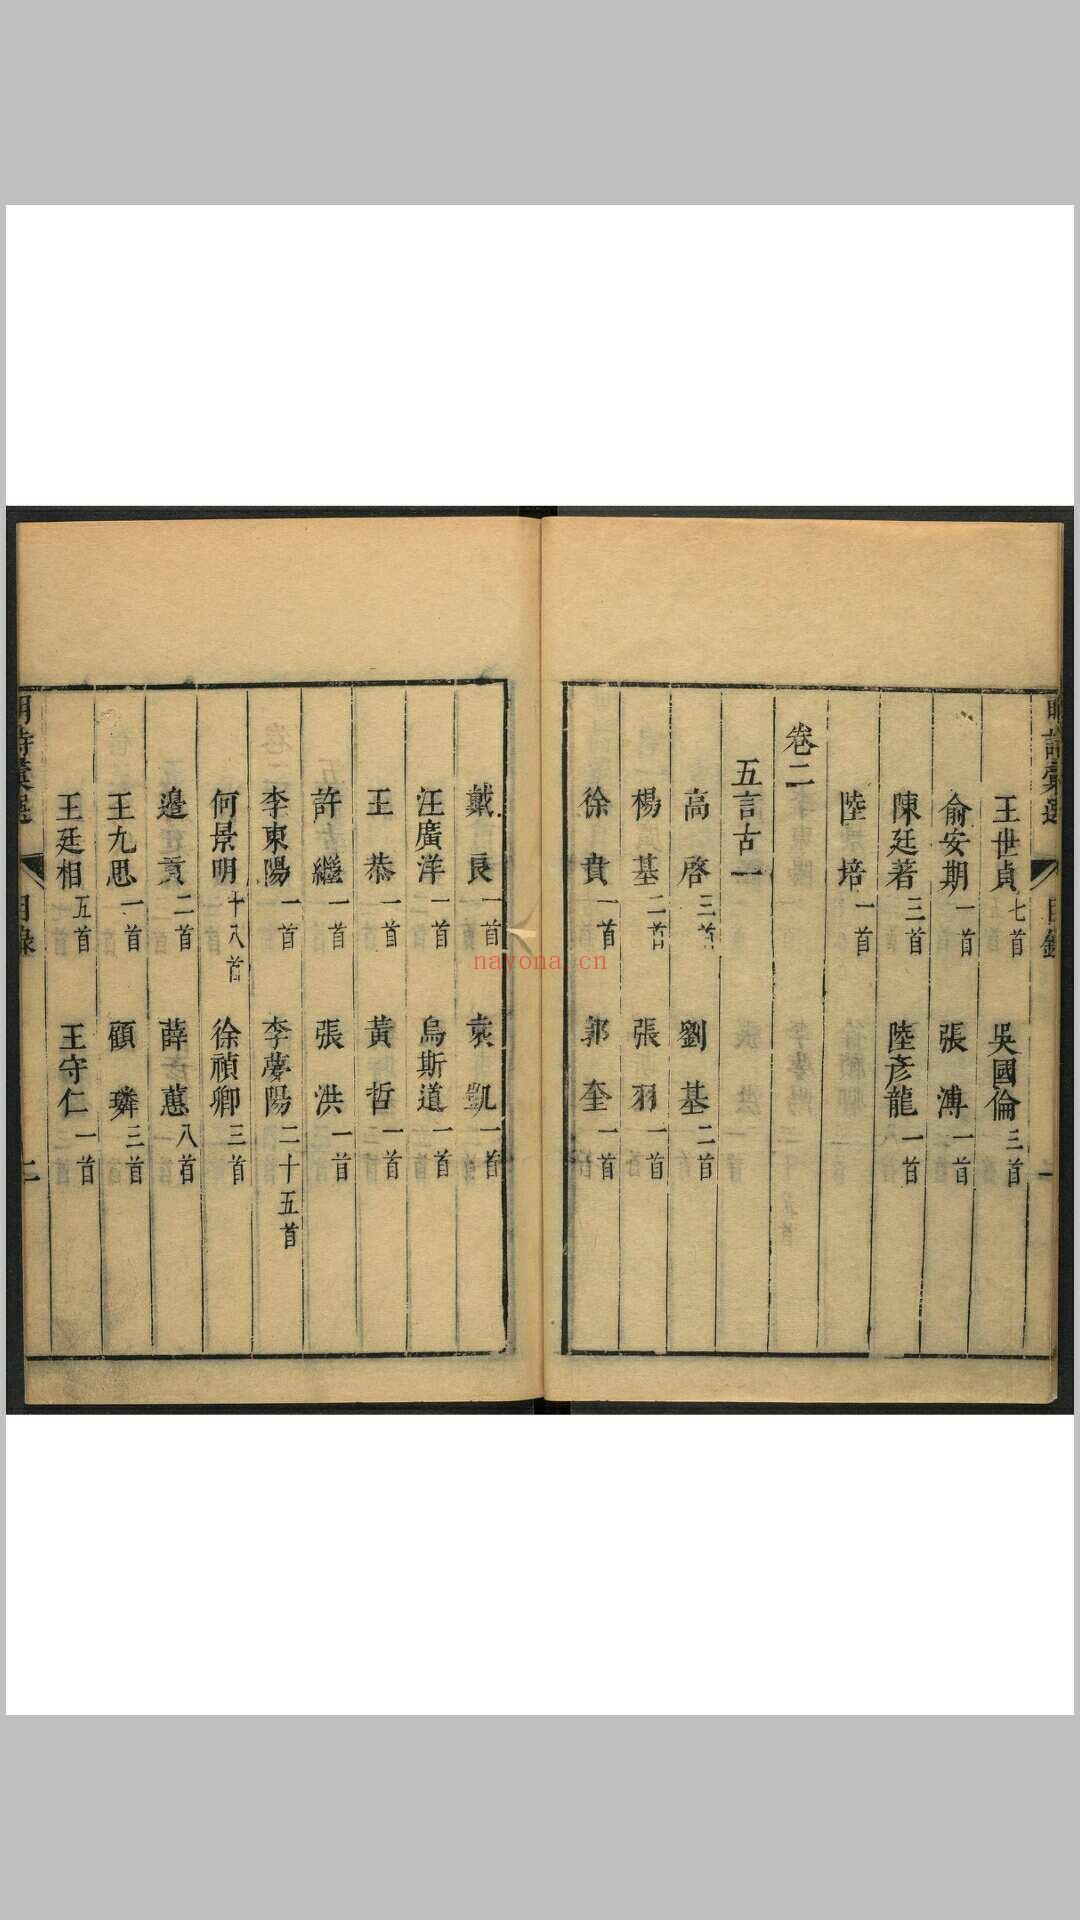 明詩彙選 目錄 一
王世貞七首 吳國倫三首
俞安期一首 張溥一首
陳廷著三首 陸彥龍一首
陸培一首
卷二
五言古一
高啓三首 劉基二首
楊基二首 張羽一首
徐賁一首 郭奎一首
戴良一首 袁凱一首
汪廣洋一首 烏斯道一首
王恭一首 黃哲一首
許繼一首 張洪一首
李東陽一首 李夢陽二十五首
何景明十八首 徐禎卿三首
邉貢二首 薛蕙八首
王九思一首 顧璘三首
王廷相五首 王守仁一首
明詩彙選 目錄 二
nayona.cn